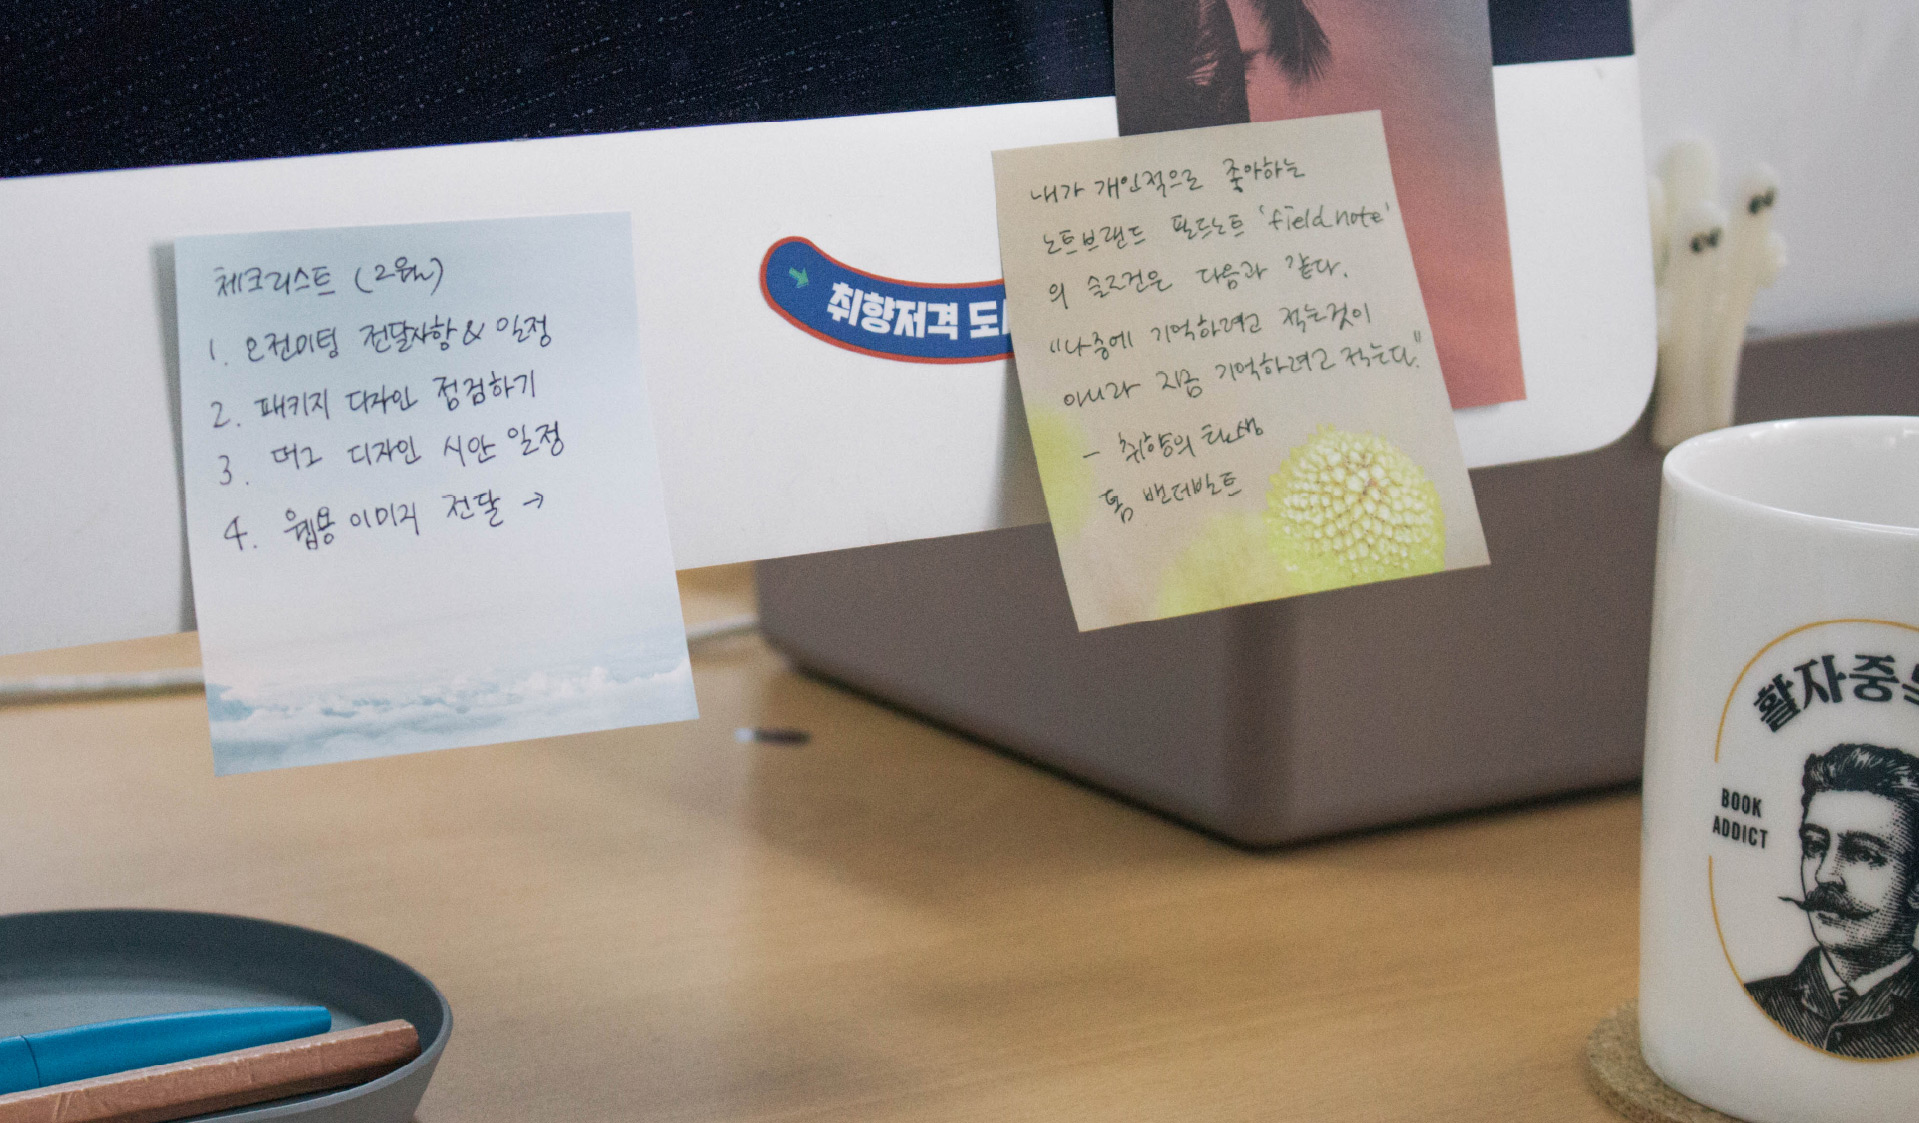 체크리스트 (2월)
1. 오전미팅 전달사항 & 일정
2. 패키지 디자인 점검하기
3. 머그 디자인 시안 일정
4. 웹용 이미지 전달 →
취향저격
내가 개인적으로 좋아하는
노트브랜드 필드노트 'field note'
의 슬로건은 다음과 같다.
"나중에 기억하려고 적는것이
아니라 지금 기억하려고 적는다."
- 취향의 탄생
톰 밴더빌트
활자중독
BOOK
ADDICT